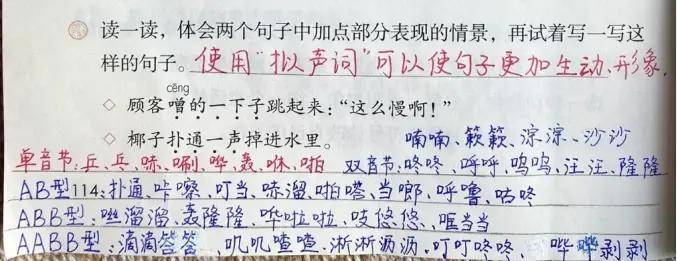 读一读，体会两个句子中加点部分表现的情景，再试着写一写这
样的句子。使用"拟声词"可以使句子更加生动、形象.
cēng
◇ 顾客噌的一下子跳起来：“这么慢啊！”
◇ 椰子扑通一声掉进水里。 喃喃、簌簌、淙淙、沙沙
单音节:乒、乓、哧、唰、哗、轰、咻、啪 双音节:咚咚、呼呼、呜呜、汪汪、隆隆
AB型114:扑通、咔嚓、叮当、哧溜、啪嗒、当啷、呼噜、咕咚
ABB型:咝溜溜、轰隆隆、哗啦啦、吱悠悠、哐当当
AABB型:滴滴答答、叽叽喳喳、淅淅沥沥、叮叮咚咚、哔哔剥剥